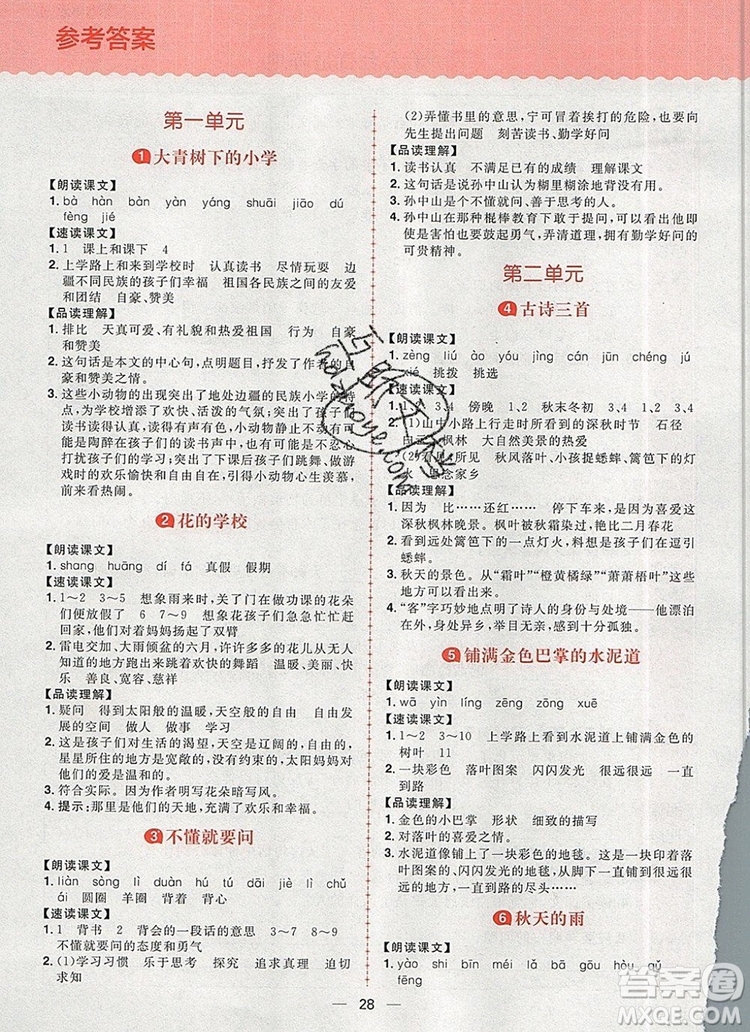 参考答案
第一单元
1 大青树下的小学
【朗读课文】
1. bà hàn bàn yàn yáng shuāi jiāo dú
fèng jié
【速读课文】
1. 1 课上和课下 4
2. 上学路上和来到学校时 认真读书 尽情玩耍 边
疆不同民族的孩子们幸福 祖国各民族之间的友爱
和团结 自豪、赞美
【品读理解】
1. 排比 天真可爱、有礼貌和热爱祖国 行为 自豪
和赞美
2. 这句话是本文的中心句,点明题目,抒发了作者的自
豪和赞美之情。
3. 这些小动物的出现突出了地处边疆的民族小学的特
点,为学校增添了欢快、活泼的气氛;突出了孩子们
认真读书,读得有声有色,小动物静止不动可
能是陶醉在孩子们的读书声中,不忍心
打扰孩子们学习;突出了下课后孩子们跳舞、做游
戏时的欢愉愉快和自由自在,引得小动物心生羡慕,前
来看热闹。
2 花的学校
【朗读课文】
1. shang huāng dí fú 真假 假期
【速读课文】
1. 1~2 3~5 想象雨来时,关了门在做功课的花朵
们十分欢愉 6 7~9 想象孩子们急急忙忙赶
回家,对着妈妈扬起了双臂
2. 雷电交加、大雨倾盆的六月,许许多多的花儿从无人
知道的地方跑出来跳着欢快的舞蹈 温暖、美好、快
乐 善良、宽容、慈祥
【品读理解】
1. 疑问 得到太阳般的温暖,天空般的自由自在
发展的空间 做人 做事 学习
2. 这是孩子们对生活的渴望,天空是辽阔的,自由的,
星星所住的地方是明亮的,没有约束的,太阳妈妈是
温暖的。
3. 符合实际。因为作者用绿叶来暗写风。
4. 提示:那是他们的天地,充满了欢乐和幸福。
3 不懂就要问
【朗读课文】
1. lián sòng lì duàn hú tú dāi jiè lì chǔ
ái 圆圈 羊圈 背着 背心
【速读课文】
1. 1 背书 2 背会的一段话的意思 3~7 8~9
不懂就要问的态度和勇气
2. (1)学习习惯 乐于思考 探究 追求真理 迫切
求知
(2)弄懂书里的意思,宁可冒着挨打的危险,也要向
先生提出问题 刻苦读书、勤学好问
【品读理解】
1. 读书认真 不满足已有的成绩 理解课文
2. 这句话是说孙中山认为糊里糊涂地背没有用。
3. 孙中山是个不懂就问、善于思考的人。
4. 孙中山的那种棍棒教育下敢于提出问题的不怕困难,即
使是害怕也要鼓起勇气,弄清道理,拥有求知的
可贵精神。
第二单元
4 古诗三首
【朗读课文】
1. zèng liú ào yóu jìng cán jūn chéng jú
xié 挑拨 挑选
【速读课文】
1. 2 1、2 3、4 傍晚 2 秋末冬初 3、4
2. (1)山中小路上行走时所看到的深秋时节 石径
白云 枫林 大自然美景的热爱
(2)看见 所见 秋风落叶,小孩捉蟋蟀,篱笆下的灯
火 思念家乡
【品读理解】
1. 因为 比……还红…… 停下车来,是因为喜爱这
深秋枫林晚景。枫叶被秋霜染过,胜过二月春花。
2. 看到远处篱笆的一点灯火,料想是孩子们在捉
蟋蟀。
3. 秋天的景色。从“霜叶”“橙黄橘绿”“萧萧梧叶”可以
看出。
4. “客”字巧妙地点明了诗人的身份与处境——他漂泊
在外,身处异乡,举目无亲,感到十分孤独。
5 铺满金色巴掌的水泥道
【朗读课文】
1. wā yìn líng zēng zōng xuē
【速读课文】
1. 1~2 3~10 上学路上看到水泥道上铺满金色的
树叶 11
2. 一块彩色 落叶图案 闪闪发光 很远很远 一直
到路
【品读理解】
1. 金色的小巴掌 形状 细致的描写
2. 对落叶的喜爱之情。
3. 水泥道像铺上了一块彩色的地毯。这是一块印着落
叶图案的、闪闪发光的地毯,从脚下一直铺到很远很
远的地方,一直到路的尽头……
6 秋天的雨
【朗读课文】
yào shi bīn méi lǎ bā gōu hòu qǔ
fēng
28
答案圈
MXQE.COM